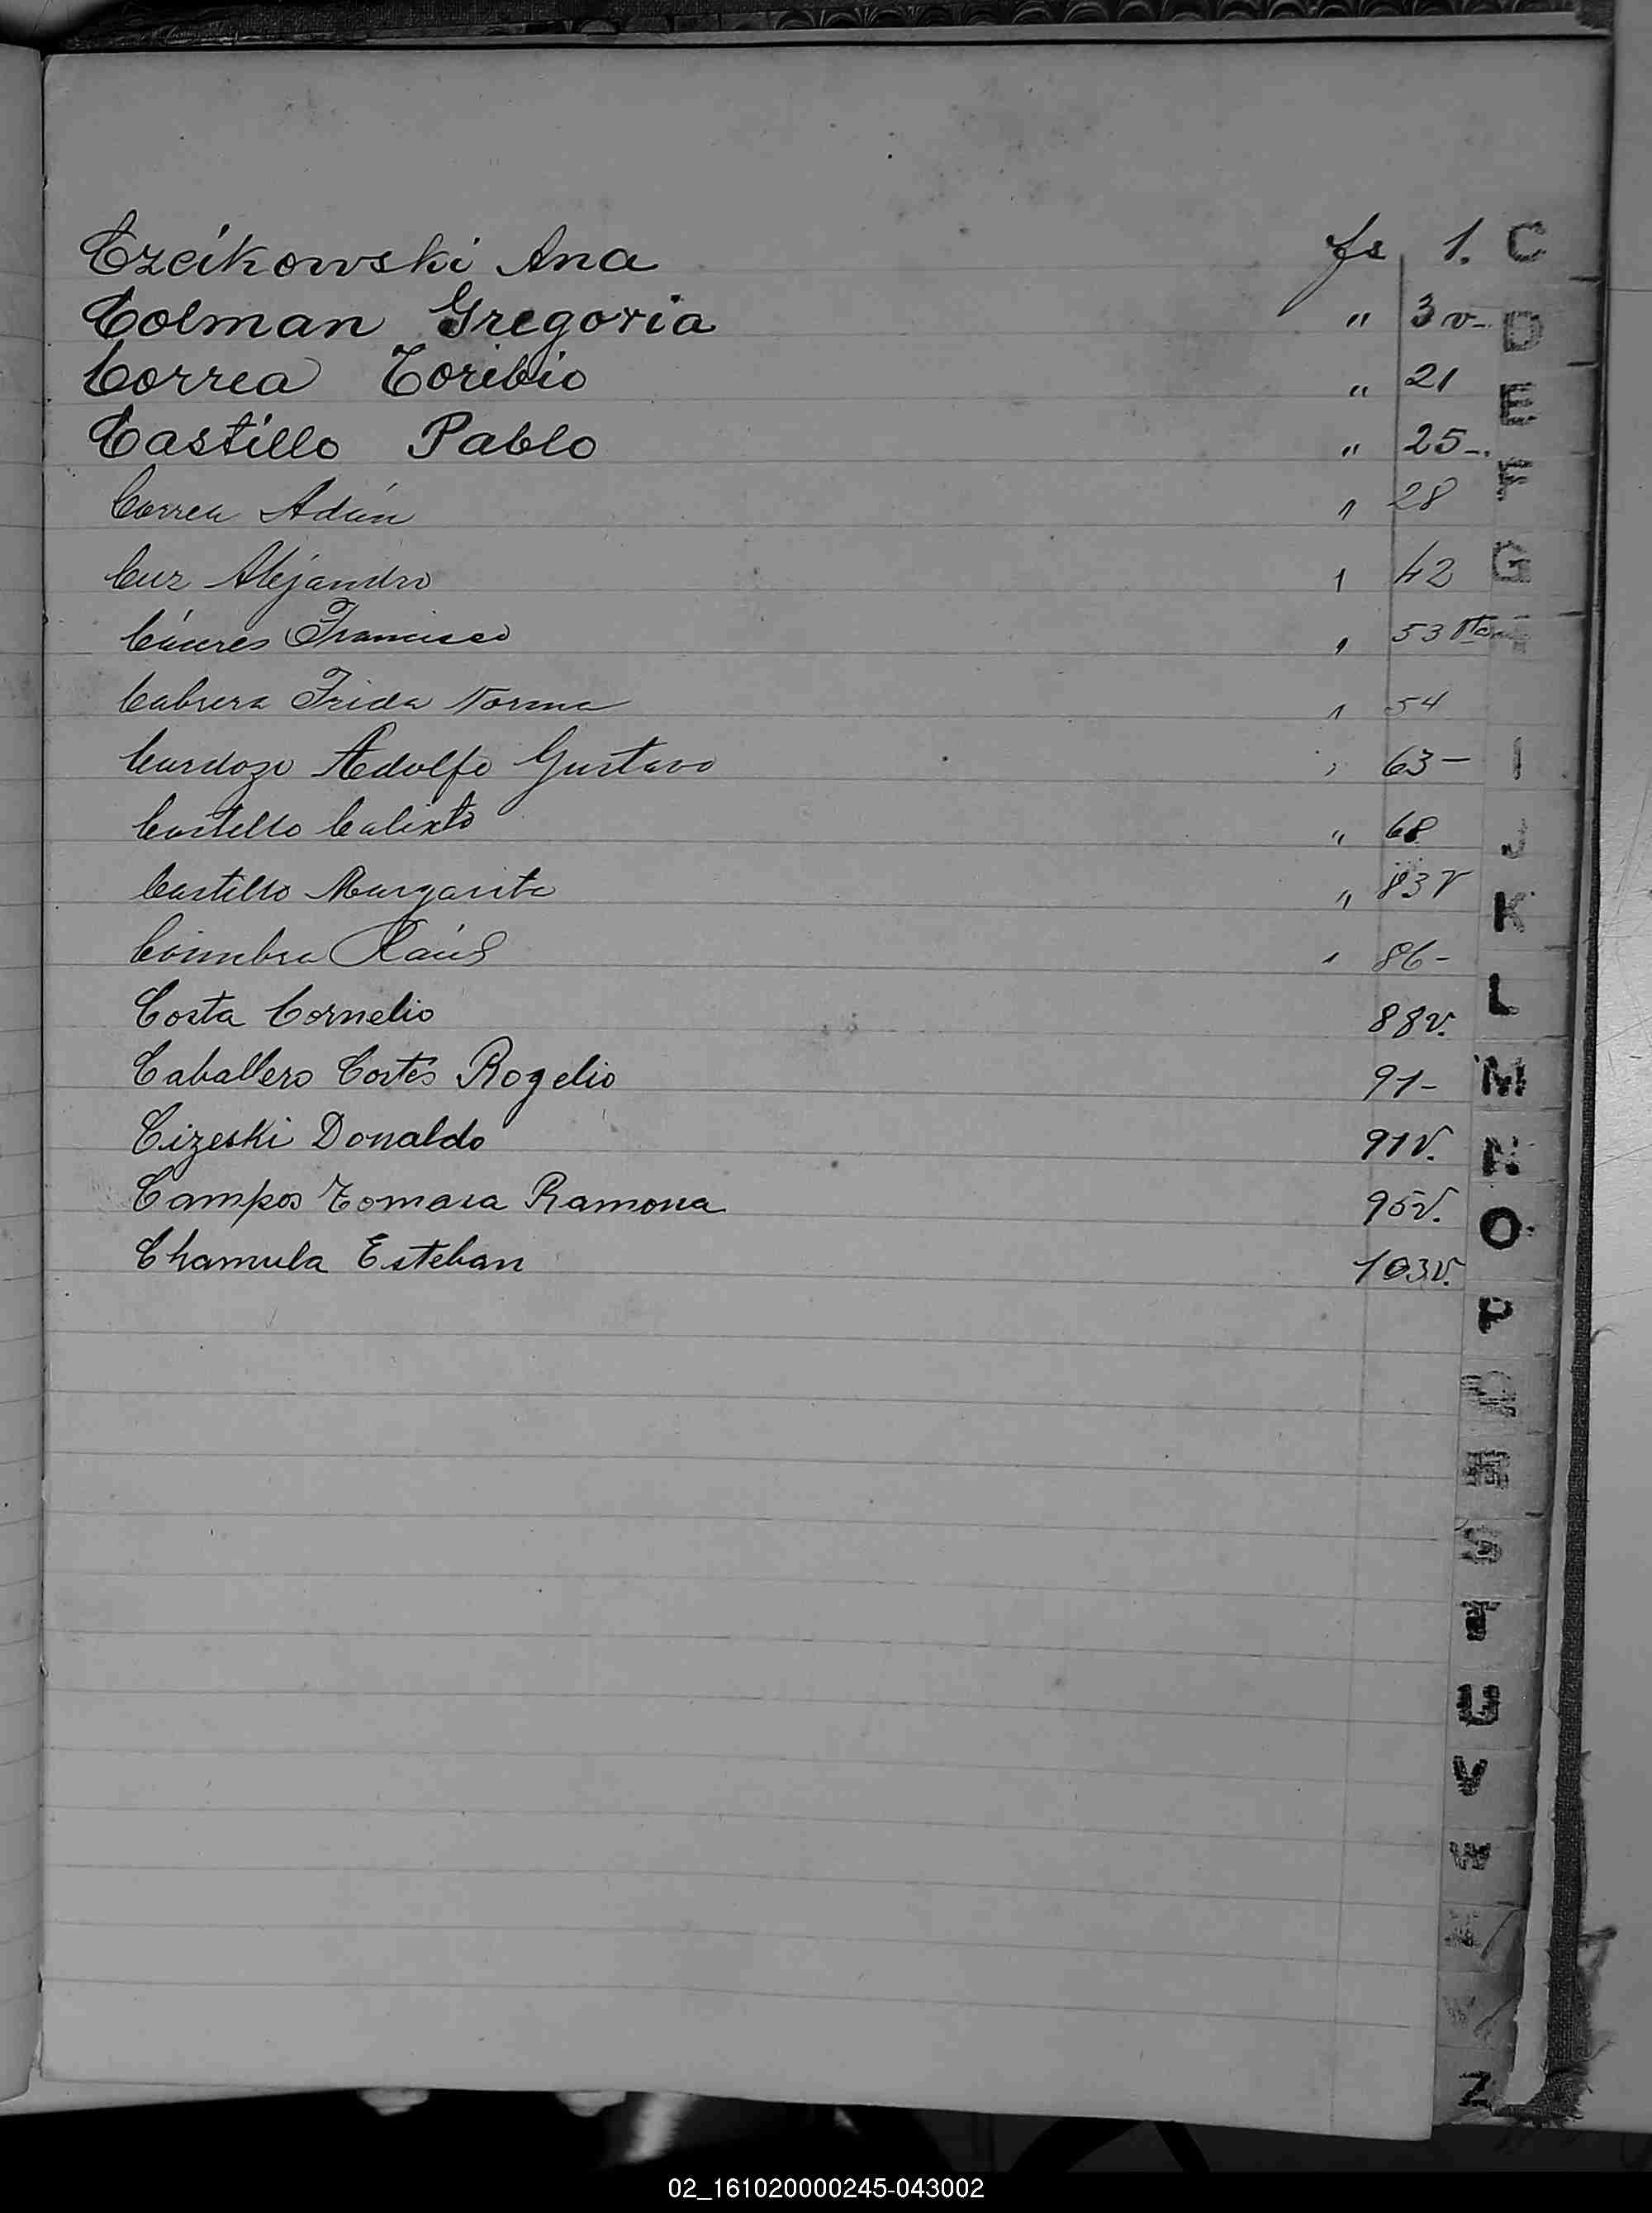 Czcikowski Ana fs 1.
Colman Gregoria " 3 v-
Correa Toribio " 21
Castillo Pablo " 25-
Correa Adán " 28
Cuz Alejandro " 42
Cáceres Francisco " 53 Vta
Cabrera Frida Norma " 54
Cardozo Adolfo Gustavo " 63-
Castello Calixto " 68
Castillo Margarita " 83 v
Coimbra Raúl " 86-
Costa Cornelio 88v.
Caballero Cortés Rogelio 91-
Cizeski Donaldo 91v.
Campos Tomasa Ramona 95v.
Chamula Esteban 103v.
C
D
E
F
G
I
J
K
L
M
N
O
P
Q
R
S
T
U
V
W
Z
02_161020000245-043002